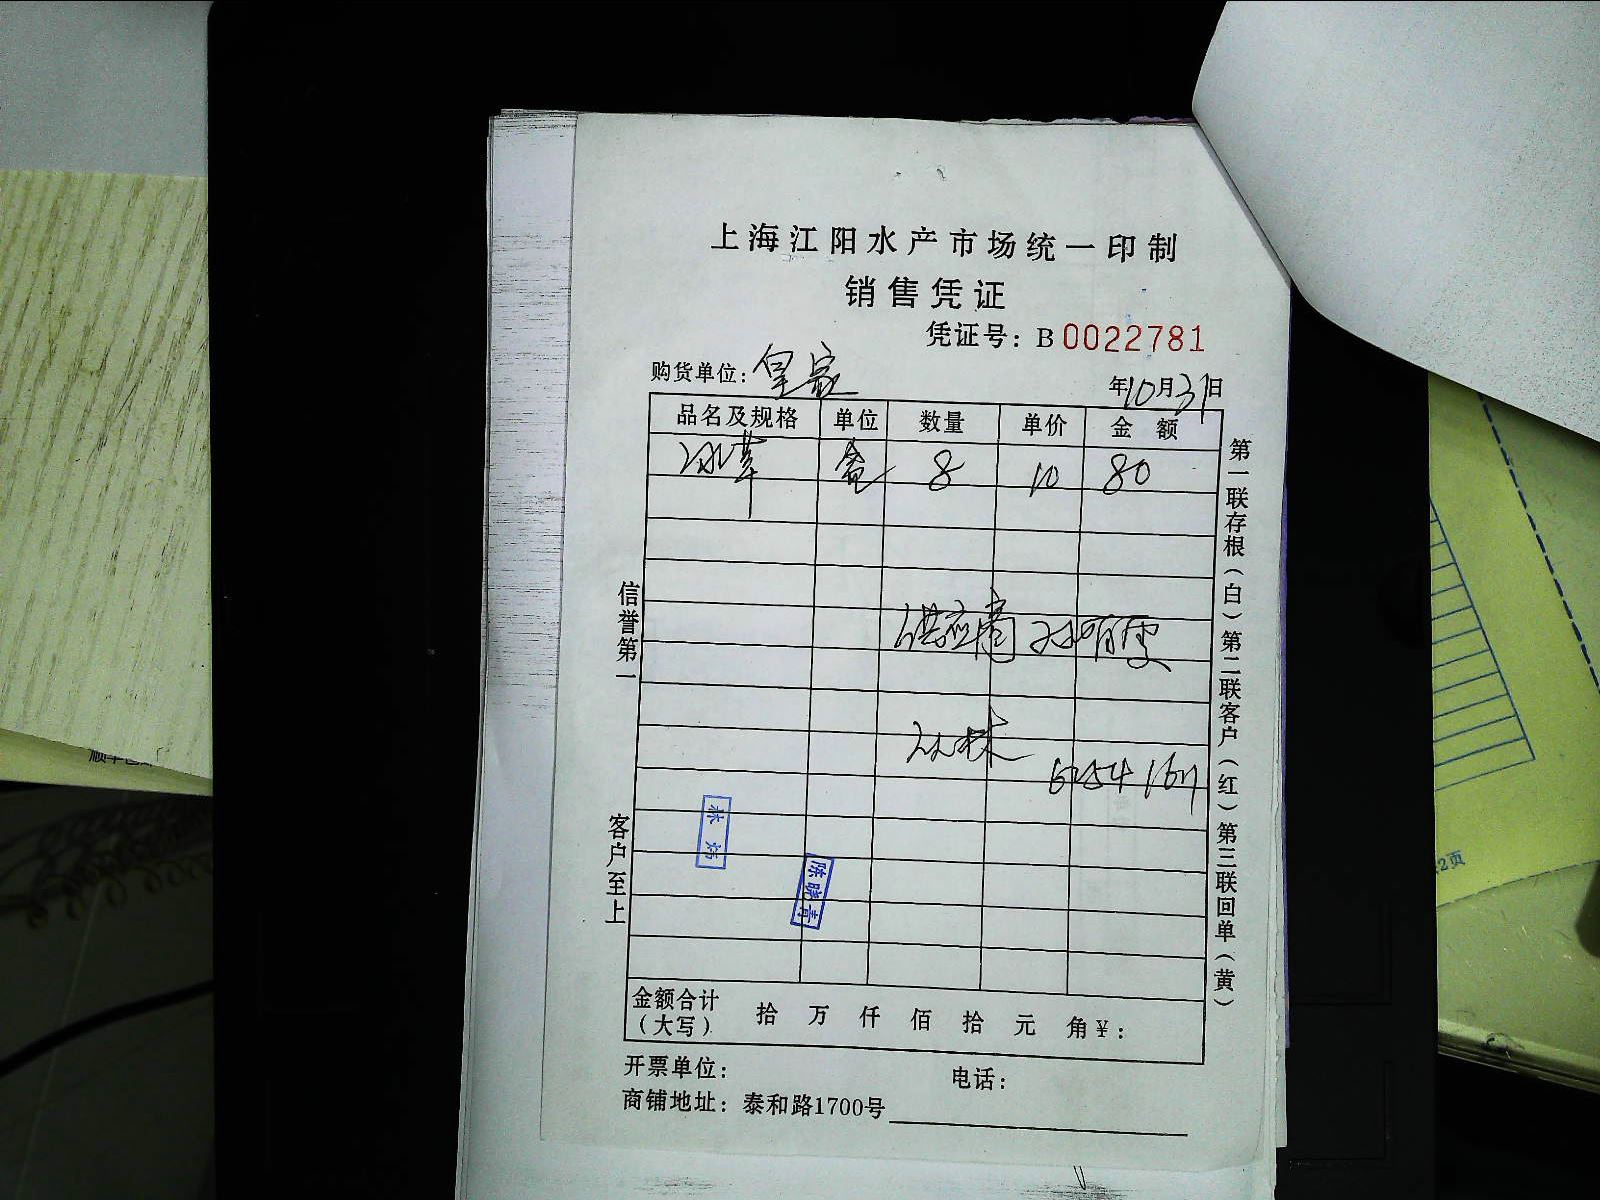 上海江阳水产市场统一印制
销售凭证
凭证号：B 0022781
购货单位：皇家 年10月31日
品名及规格 单位 数量 单价 金额
冰草 盒 8 10 80
供应商
林炜
陈晓青
信誉第一
客户至上
第一联存根（白）第二联客户（红）第三联回单（黄）
金额合计（大写） 拾 万 仟 佰 拾 元 角 ¥：
开票单位： 电话：
商铺地址：泰和路1700号
2页